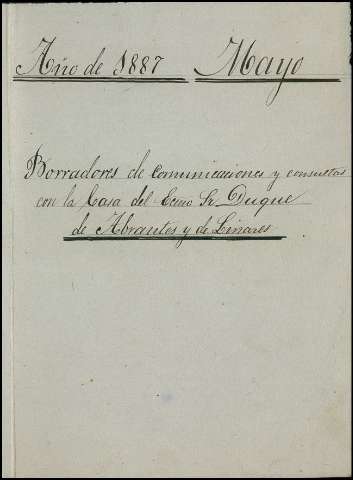 Año de 1887 Mayo
Borradores de comunicaciones y consultas
con la Casa del Ecmo Sr. Duque
de Abrantes y de Linares